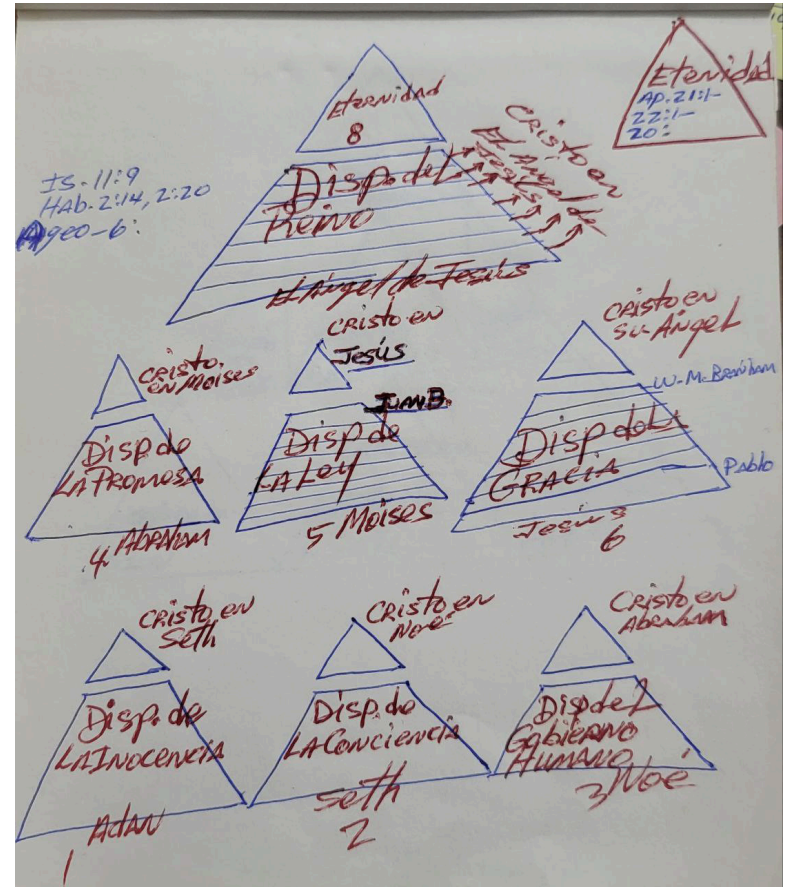 Eternidad
8
Eternidad
Ap. 21:1-
22:1-
20:
IS. 11:9
HAb. 2:14, 2:20
Ageo-6:
Disp. del
Reino
El Ángel de Jesús
CRISTO EN
El Ángel de
Jesús
CRISTO EN
MOISES
Disp. de
LA PROMESA
4. AbRAHAM
CRISTO EN
JESÚS
JUAN B.
Disp de
LA LEY
5 MOISES
CRISTO EN
SU ÁNGEL
W. M. BRANHAM
Disp de La
GRACIA
Pablo
Jesús
6
CRISTO EN
Seth
Disp. de
LA INOCENCIA
ADAN
1
CRISTO EN
Noé
Disp. de
LA CONCIENCIA
Seth
2
CRISTO EN
AbRAHAM
Disp del
Gobierno
Humano
3 Noé